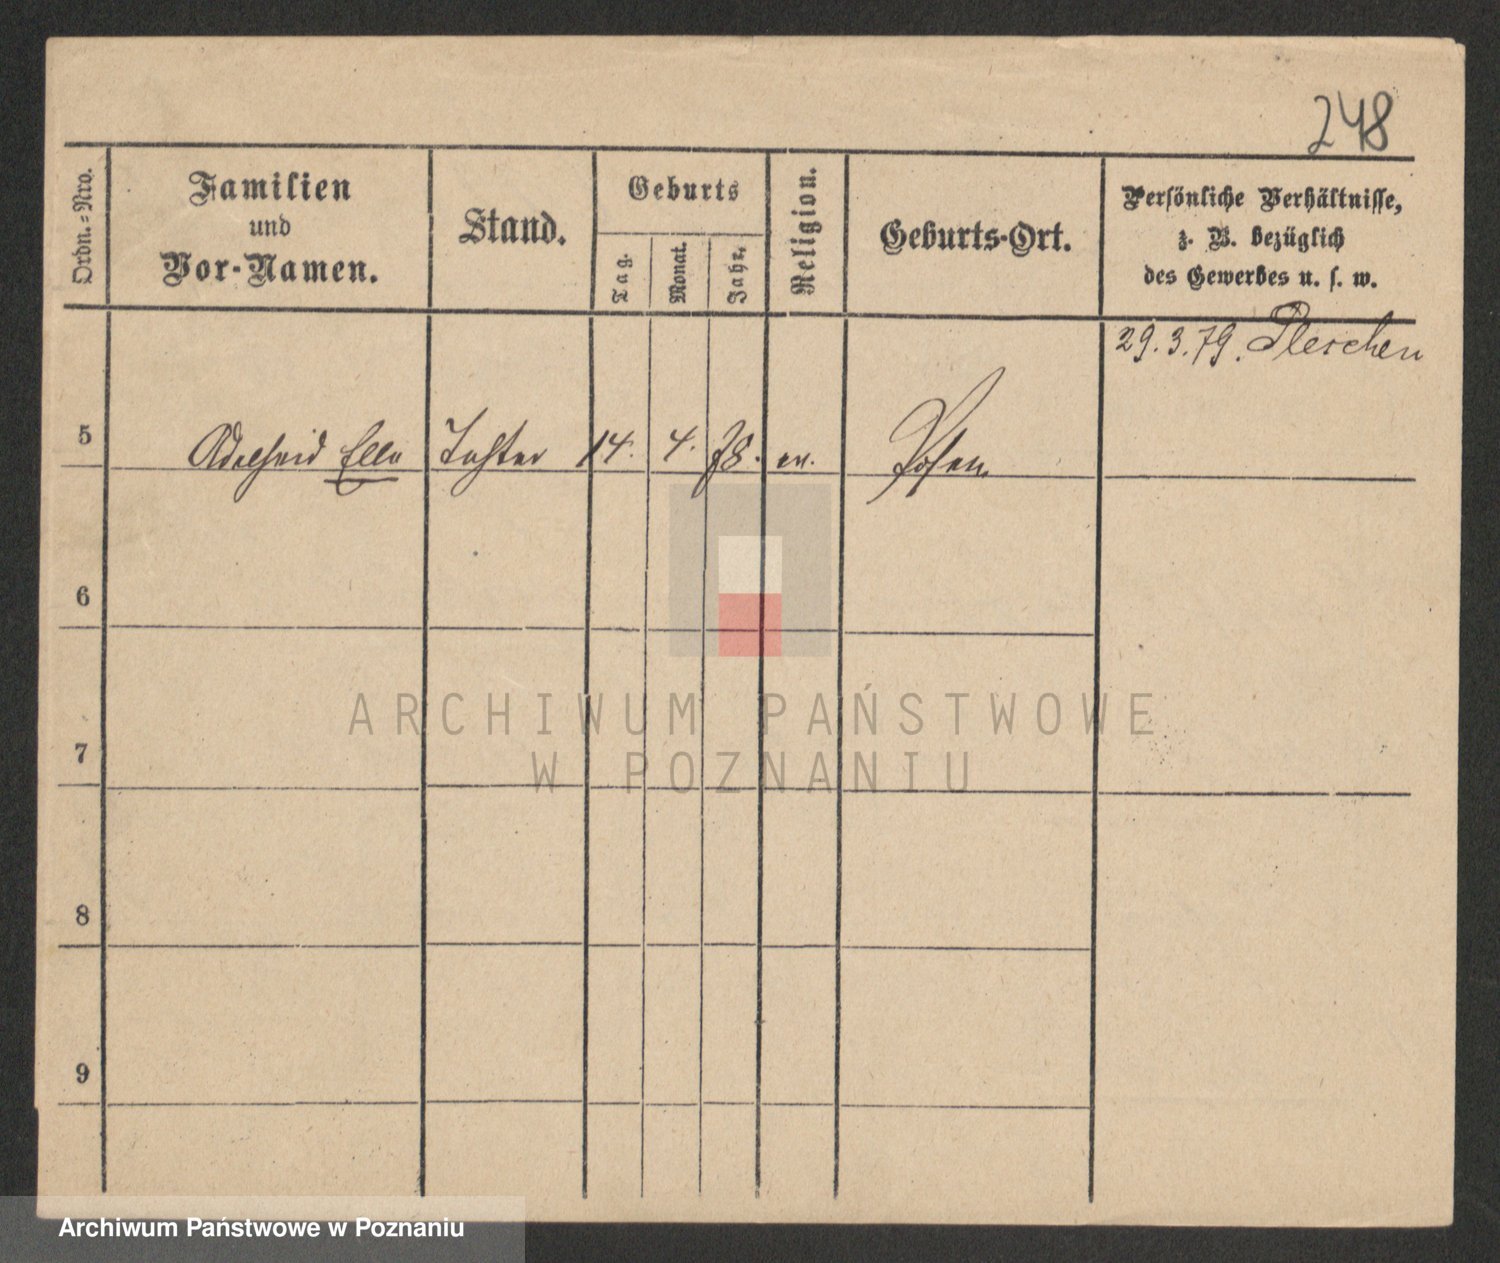 248
Ordn.=Nro.
Familien
und
Vor-Namen.
Stand.
Geburts
Tag.
Monat.
Jahr.
Religion.
Geburts-Ort.
Persönliche Verhältnisse,
z. B. bezüglich
des Gewerbes u. s. w.
29.3.79. Pleschen
5 Adelheid Ella Tochter 14. 4. 78. ev. Posen
6
7
8
9
ARCHIWUM PAŃSTWOWE
W POZNANIU
Archiwum Państwowe w Poznaniu